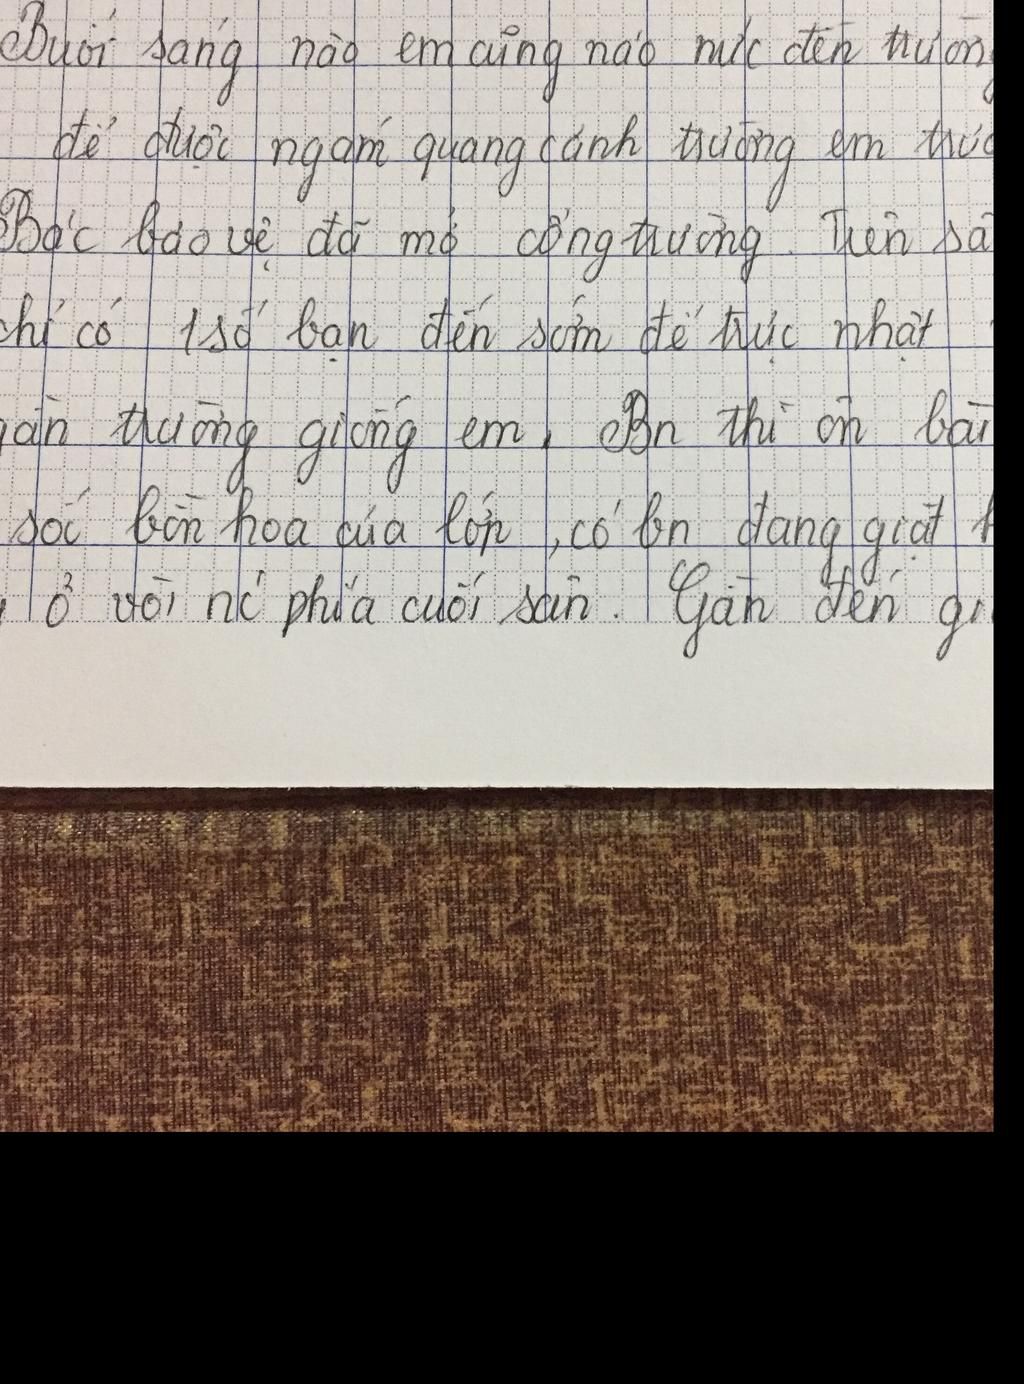 Buổi sáng nào em cũng náo nức đến trường
để được ngắm quang cảnh trường em
Bác bảo vệ đã mở cổng trường. Trên
chỉ có 1 số bạn đến sớm để trực nhật
gần trường giống em. Bn thì ôn bài
sóc bồn hoa của lớp, có bn đang giặt
ở vòi nc phía cuối sân. Gần đến